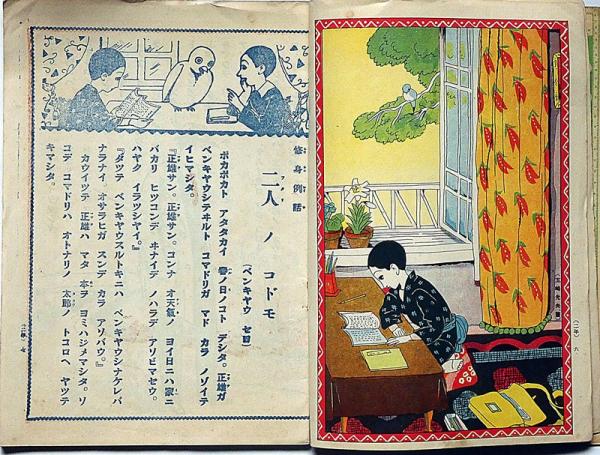 修身例話
二人ノコドモ
(ベンキヤウ セヨ)
ポカポカト アタタカイ 春ノ日ノコト デシタ。正雄ガ
ベンキヤウシテヰルト コマドリガ マド カラ ノゾイテ
イヒマシタ。
『正雄サン。正雄サン。コンナ オ天氣ノ ヨイ日ニハ家ニ
バカリ ヒツコンデ ヰナイデ ノハラデ アソビマセウ。
ハヤク イラツシヤイ。』
『ダツテ ベンキヤウスルトキニハ ベンキヤウシナケレバ
ナラナイ オサラヒガ スンデ カラ アソバウ。』
カウイツテ 正雄ハ マタ 本ヲ ヨミハジメマシタ。ソ
コデ コマドリハ オトナリノ 太郎ノ トコロヘ ヤツテ
キマシタ。
(二年) 七
(二年) 六